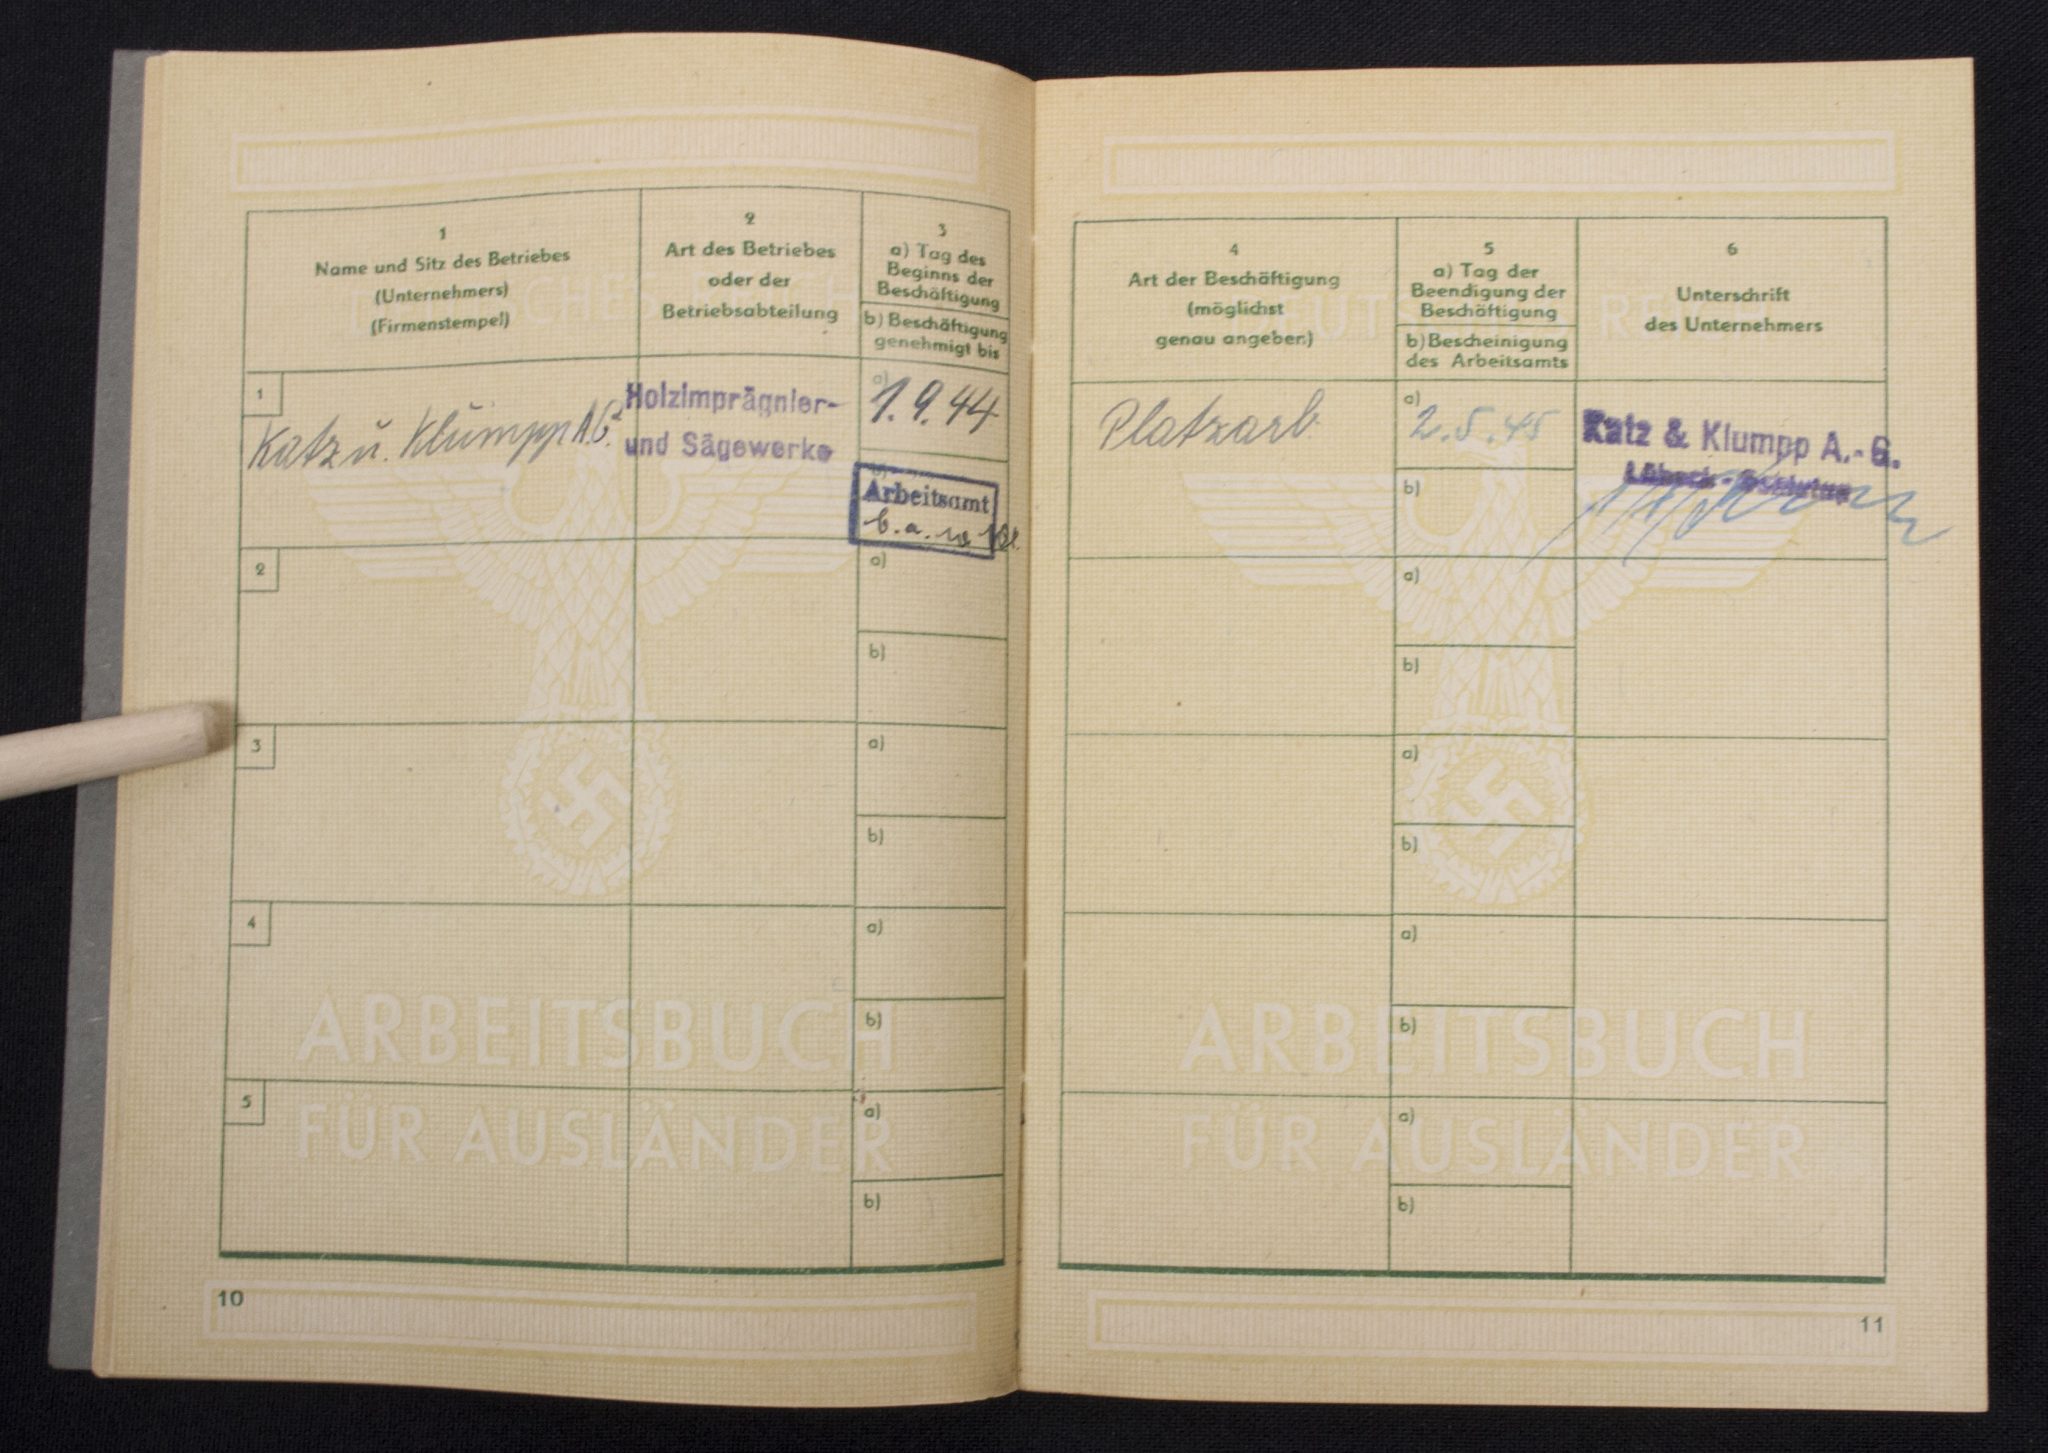 1
Name und Sitz des Betriebes
(Unternehmers)
(Firmenstempel)
2
Art des Betriebes
oder der
Betriebsabteilung
3
a) Tag des
Beginns der
Beschäftigung
b) Beschäftigung
genehmigt bis
1
Katz u. Klumpp A.G.
Holzimprägnier-
und Sägewerke
a)
1.9.44
b)
Arbeitsamt
2
a)
b)
3
a)
b)
4
a)
b)
5
a)
b)
DEUTSCHES REICH
ARBEITSBUCH
FÜR AUSLÄNDER
10
4
Art der Beschäftigung
(möglichst
genau angeben)
5
a) Tag der
Beendigung der
Beschäftigung
b) Bescheinigung
des Arbeitsamts
6
Unterschrift
des Unternehmers
Platzarb.
a)
2.5.45
b)
Katz & Klumpp A.-G.
Lübeck-
a)
b)
a)
b)
a)
b)
a)
b)
DEUTSCHES REICH
ARBEITSBUCH
FÜR AUSLÄNDER
11